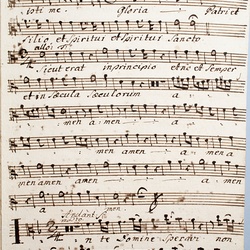 toti me Gloria Patri et
Filio et Spiritui et Spiritui Sancto
allo:
Sicut erat in principio et nc et Semper
et in Sæcula Sæculorum a
men a men a
men amen a
men amen amen a
a men.
Andante
In te Domine Speravi non